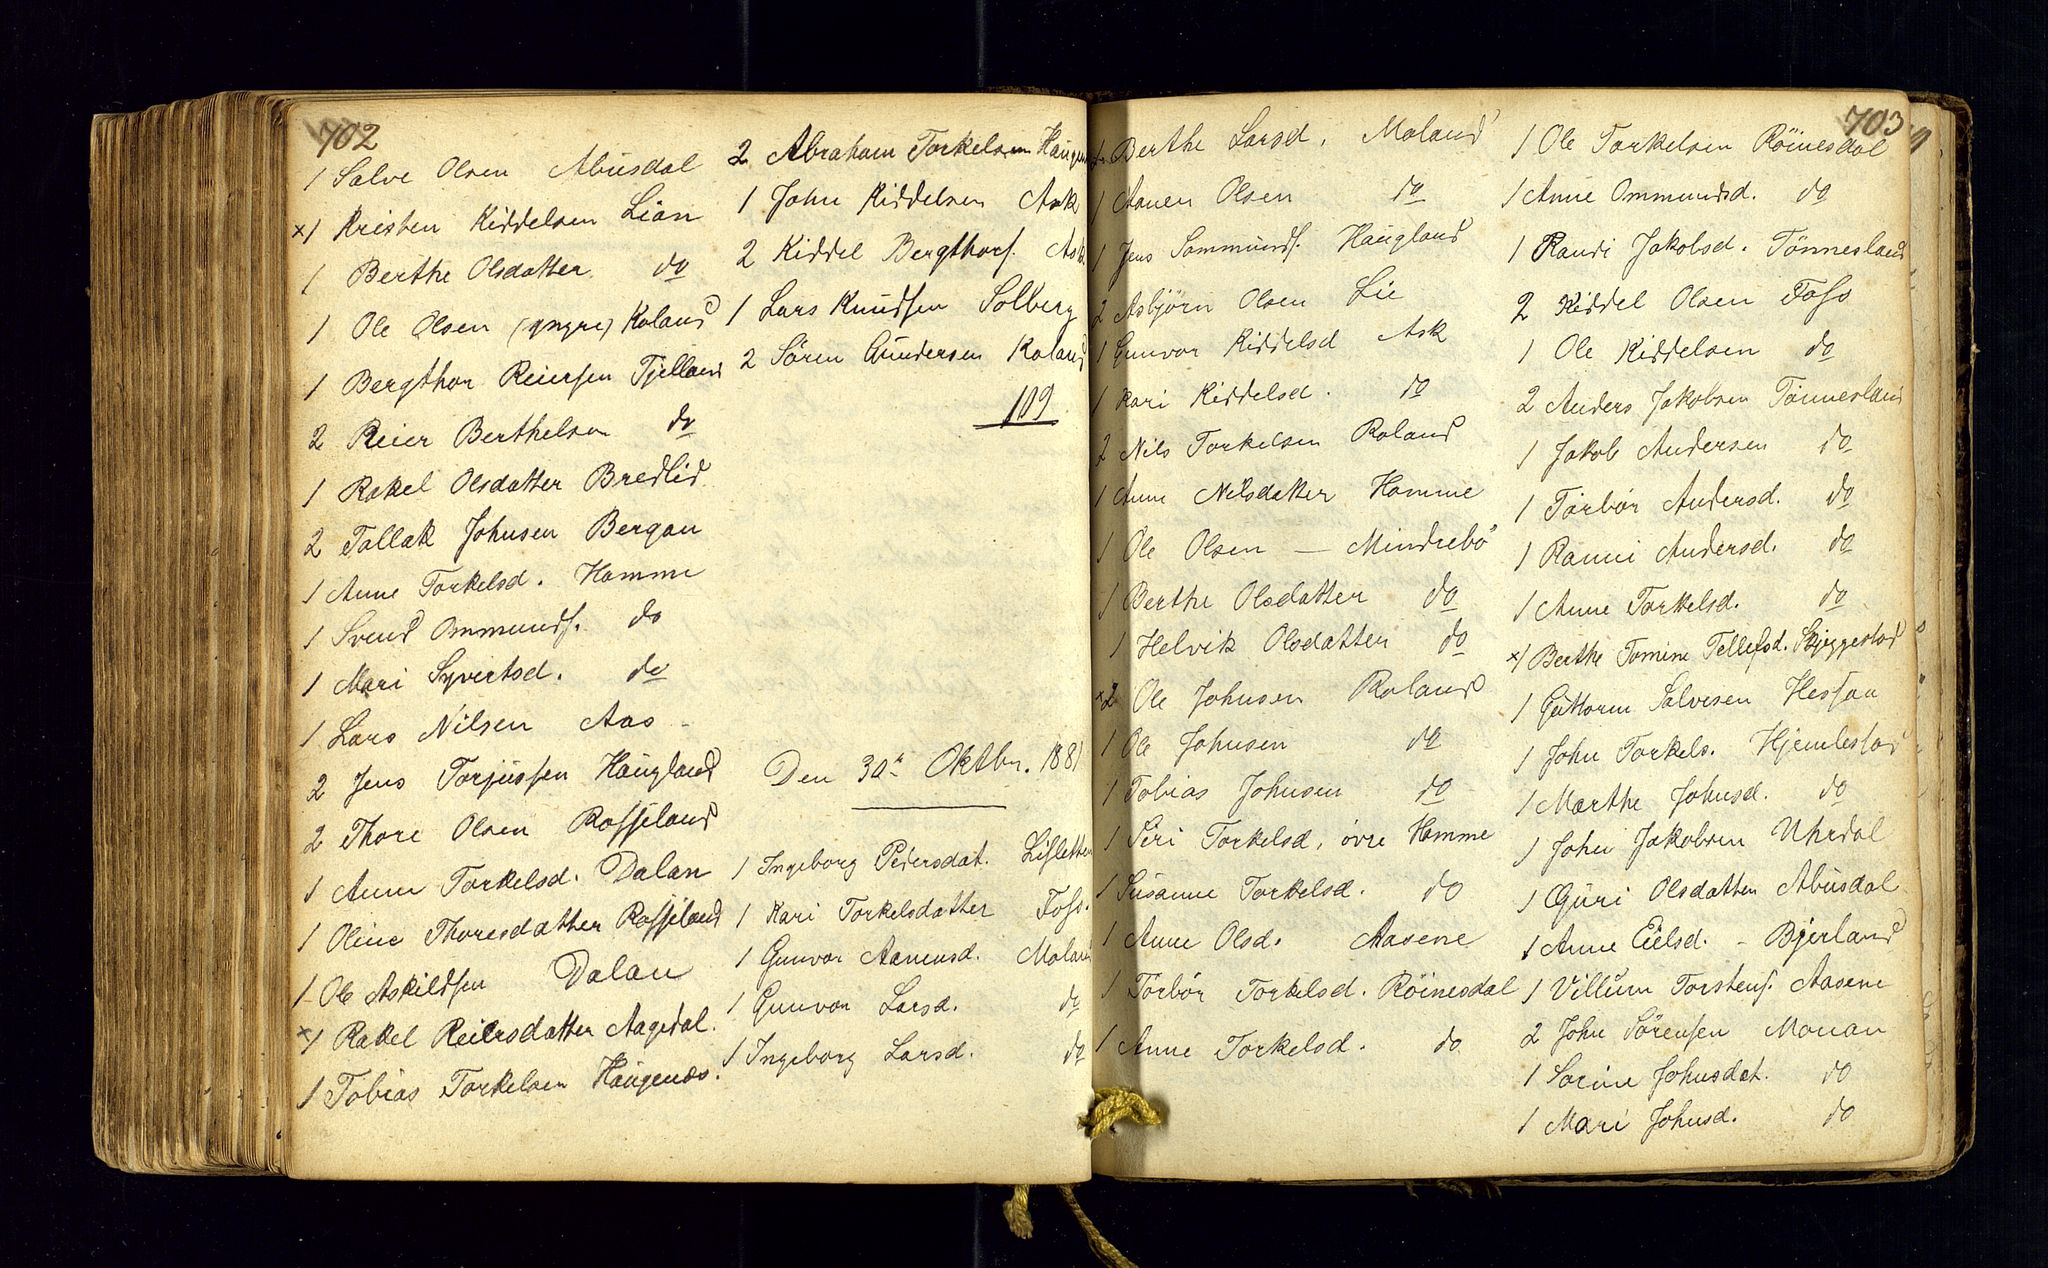 702
1 Salve Olsen Abusdal
×1 Kristen Kiddelsen Lian
1 Berthe Olsdatter do
1 Ole Olsen (yngre) Roland
1 Bergthor Reiersen Tjelland
2 Reier Berthelsen do
1 Rakel Olsdatter Bredlid
2 Tallak Johnsen Bergan
1 Anne Torkelsd. Homme
1 Svend Ommunds. do
1 Mari Syvertsd. do
1 Lars Nilsen Aas
2 Jens Torjussen Haugland
2 Thore Olsen Rossjeland
1 Anne Torkelsd. Dalan
1 Oline Thoresdatter Rossjeland
1 Ole Askildsen Dalan
×1 Rakel Reiersdatter Aagedal.
1 Tobias Torkelsen Haugenæs.
2 Abraham Torkelsen
1 John Kiddelsen Ask
2 Kiddel Bergthors. Ask
1 Lars Knudsen Solberg
2 Sören Gundersen Roland
109
Den 30te Oktbr. 1881
1 Ingeborg Pedersdat. Lisletten
1 Kari Torkelsdatter Foss.
1 Gunvor Aanensd. Moland
1 Gunvor Larsd. do
1 Ingeborg Larsd. do
703
1 Berthe Larsd. Moland
1 Aanen Olsen do
1 Jens Sammunds. Haugland
2 Asbjörn Olsen Lie
1 Gunvor Kiddelsd Ask
1 Kari Kiddelsd. do
2 Nils Torkelsen Roland
1 Anne Nilsdatter Homme
1 Ole Olsen — Mindrebö
1 Berthe Olsdatter do
1 Helvik Olsdatter do
×2 Ole Johnsen Roland
1 Ole Johnsen do
1 Tobias Johnsen do
1 Siri Torkelsd, övre Homme
1 Susanne Torkelsd. do
1 Anne Olsd. Aasene
1 Törbör Torkelsd. Röinesdal
1 Anne Torkelsd. do
1 Ole Torkelsen Röinesdal
1 Anne Ommundsd. do
1 Randi Jakobsd. Tönnesland
2 Kiddel Olsen Foss
1 Ole Kiddelsen do
2 Anders Jakobsen Tönnesland
1 Jakob Andersen do
1 Törbör Andersd. do
1 Ranni Andersd. do
1 Anne Torkelsd. do
×1 Berthe Tomine Tellefsd. Skjeggestad
1 Guttorm Salvesen Hessaa
1 John Torkels. Hjemlestad
1 Marthe Johnsd. do
1 John Jakobsen Uhrdal
1 Guri Olsdatter Abusdal
1 Anne Eielsd. - Bjerland
1 Villum Torstens. Aasene
2 John Sörensen Monan
1 Sorine Johnsdat. do
1 Mari Johnsd. do